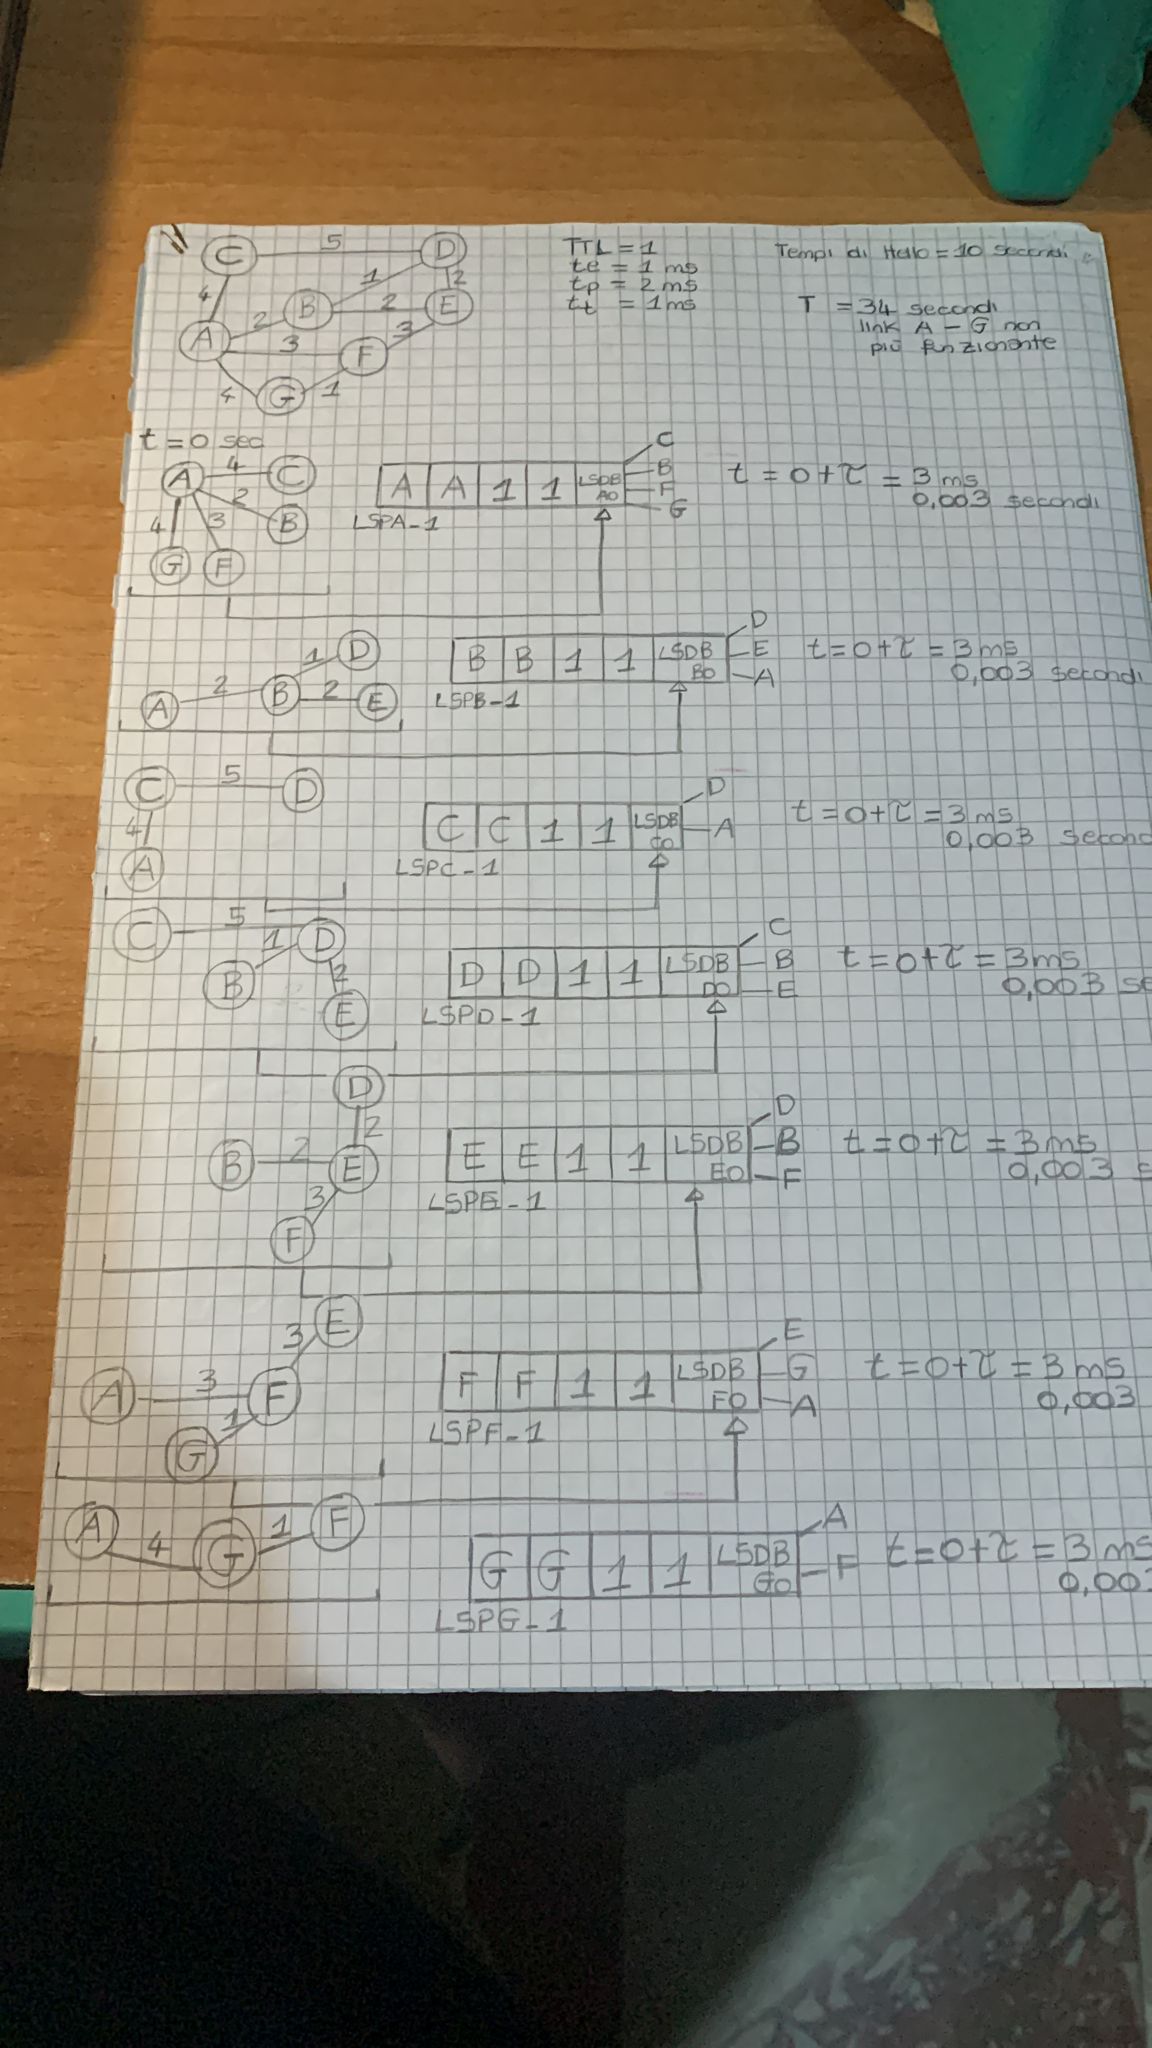 C 5 D
4 1 2
B 2 E
A 2 3 F 3
4 G 1
TTL = 1
te = 1 ms
tp = 2 ms
tt = 1 ms
Tempi di Hello = 10 secondi
T = 34 secondi
link A - G non
più funzionante
t = 0 sec
A 4 C
2 B
4 3
G F
A A 1 1 LSDB A0
C
B
F
G
LSPA-1
t = 0 + τ = 3 ms
0,003 secondi
1 D
A 2 B 2 E
B B 1 1 LSDB B0
D
E
A
LSPB-1
t = 0 + τ = 3 ms
0,003 secondi
C 5 D
4
A
C C 1 1 LSDB C0
D
A
LSPC-1
t = 0 + τ = 3 ms
0,003 second
C 5 D
1
B 2
E
D D 1 1 LSDB D0
C
B
E
LSPD-1
t = 0 + τ = 3 ms
0,003 se
D
2
B 2 E
3
F
E E 1 1 LSDB E0
D
B
F
LSPE-1
t = 0 + τ = 3 ms
0,003 s
E
3
A 3 F
1
G
F F 1 1 LSDB F0
E
G
A
LSPF-1
t = 0 + τ = 3 ms
0,003
A 4 G 1 F
G G 1 1 LSDB G0
A
F
LSPG-1
t = 0 + τ = 3 ms
0,00